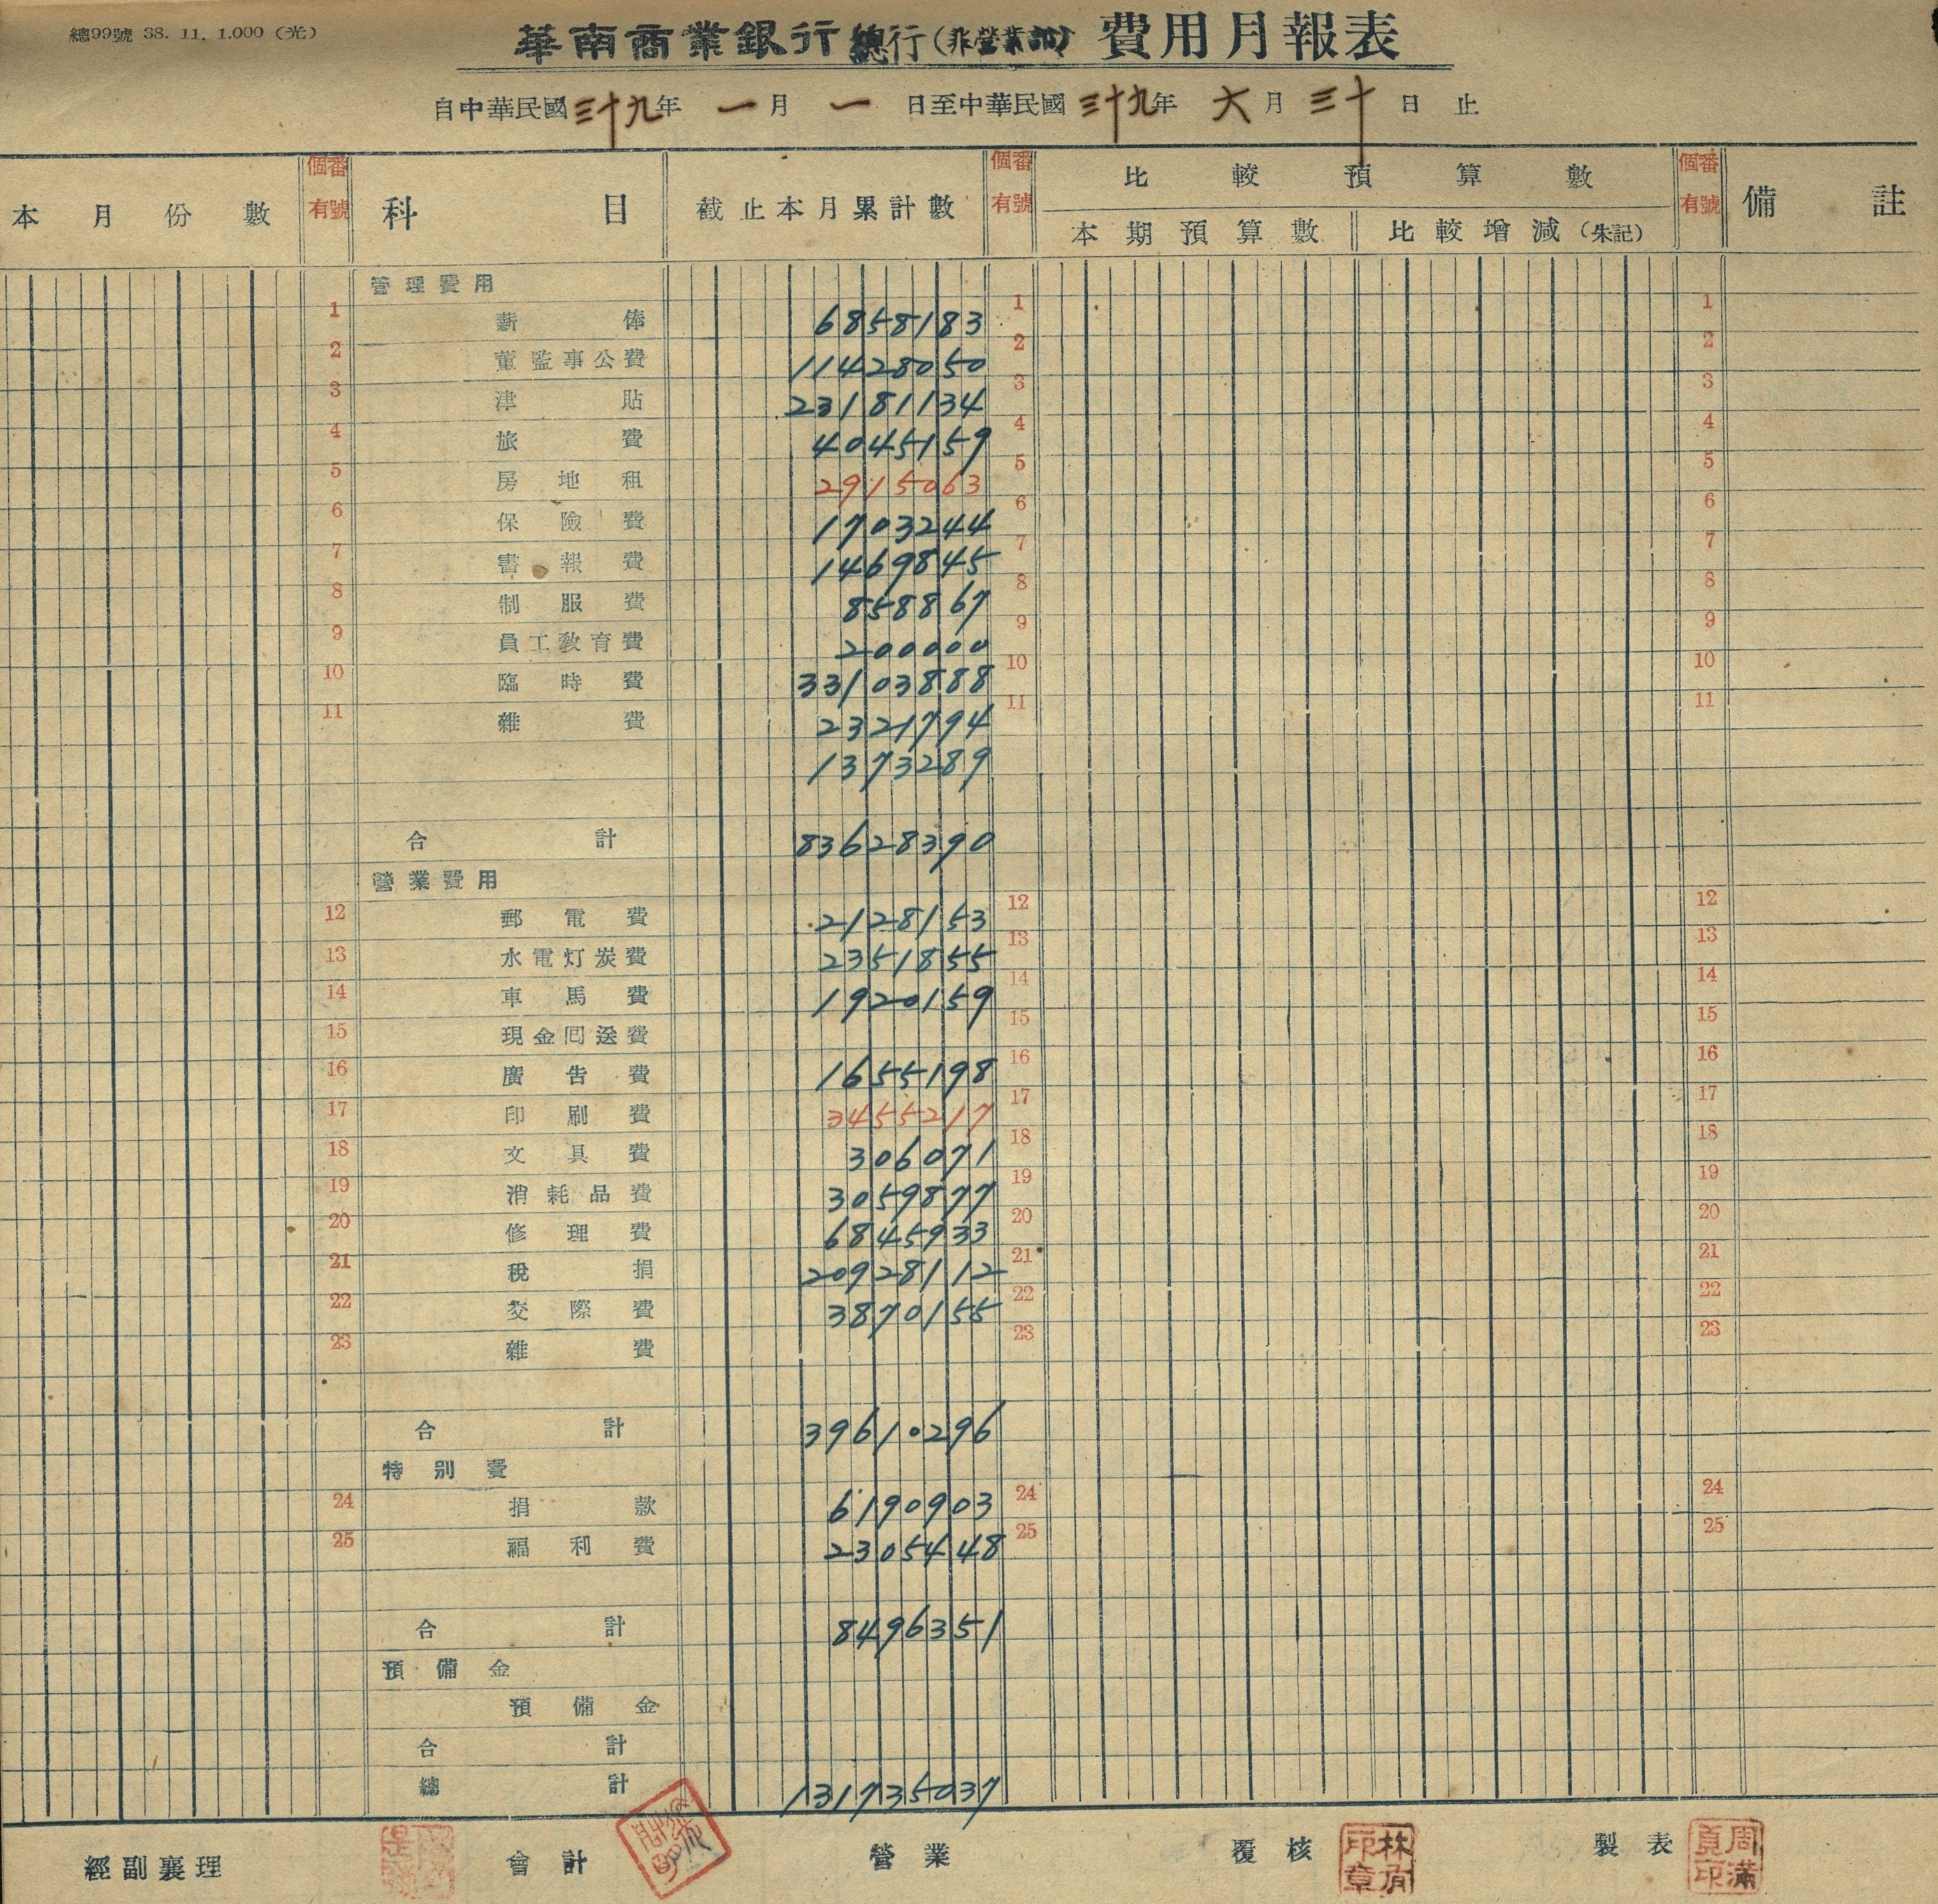 總99號 38. 11. 1.000 (光)
華南商業銀行總行(非營業部)費用月報表
自中華民國三十九年一月一日至中華民國三十九年六月三十日止
本月份數 個有番號 科目 截止本月累計數 個有番號 比較預算數 個有番號 備註
本期預算數 比較增減(朱記)
管理費用
1 薪俸 6858183 1 1
2 董監事公費 11428050 2 2
3 津貼 23181134 3 3
4 旅費 4045159 4 4
5 房地租 2915063 5 5
6 保險費 1703244 6 6
7 書報費 1469845 7 7
8 制服費 858867 8 8
9 員工教育費 200000 9 9
10 臨時費 33103888 10 10
11 雜費 2321794 11 11
1373289
合計 83628390
營業費用
12 郵電費 2128153 12 12
13 水電灯炭費 2351855 13 13
14 車馬費 1920159 14 14
15 現金回送費 15 15
16 廣告費 1655198 16 16
17 印刷費 3455217 17 17
18 文具費 306071 18 18
19 消耗品費 3059877 19 19
20 修理費 6845933 20 20
21 稅捐 20928112 21 21
22 交際費 3870155 22 22
23 雜費 23 23
合計 39610296
特別費
24 捐款 6190903 24 24
25 福利費 2305448 25 25
合計 8496351
預備金
預備金
合計
總計 131735037
經副襄理 會計 營業 覆核 林有印章 製表 周滿貢印